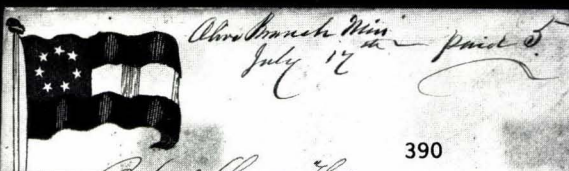 Olive Branch Miss
July 17th Paid 5
390